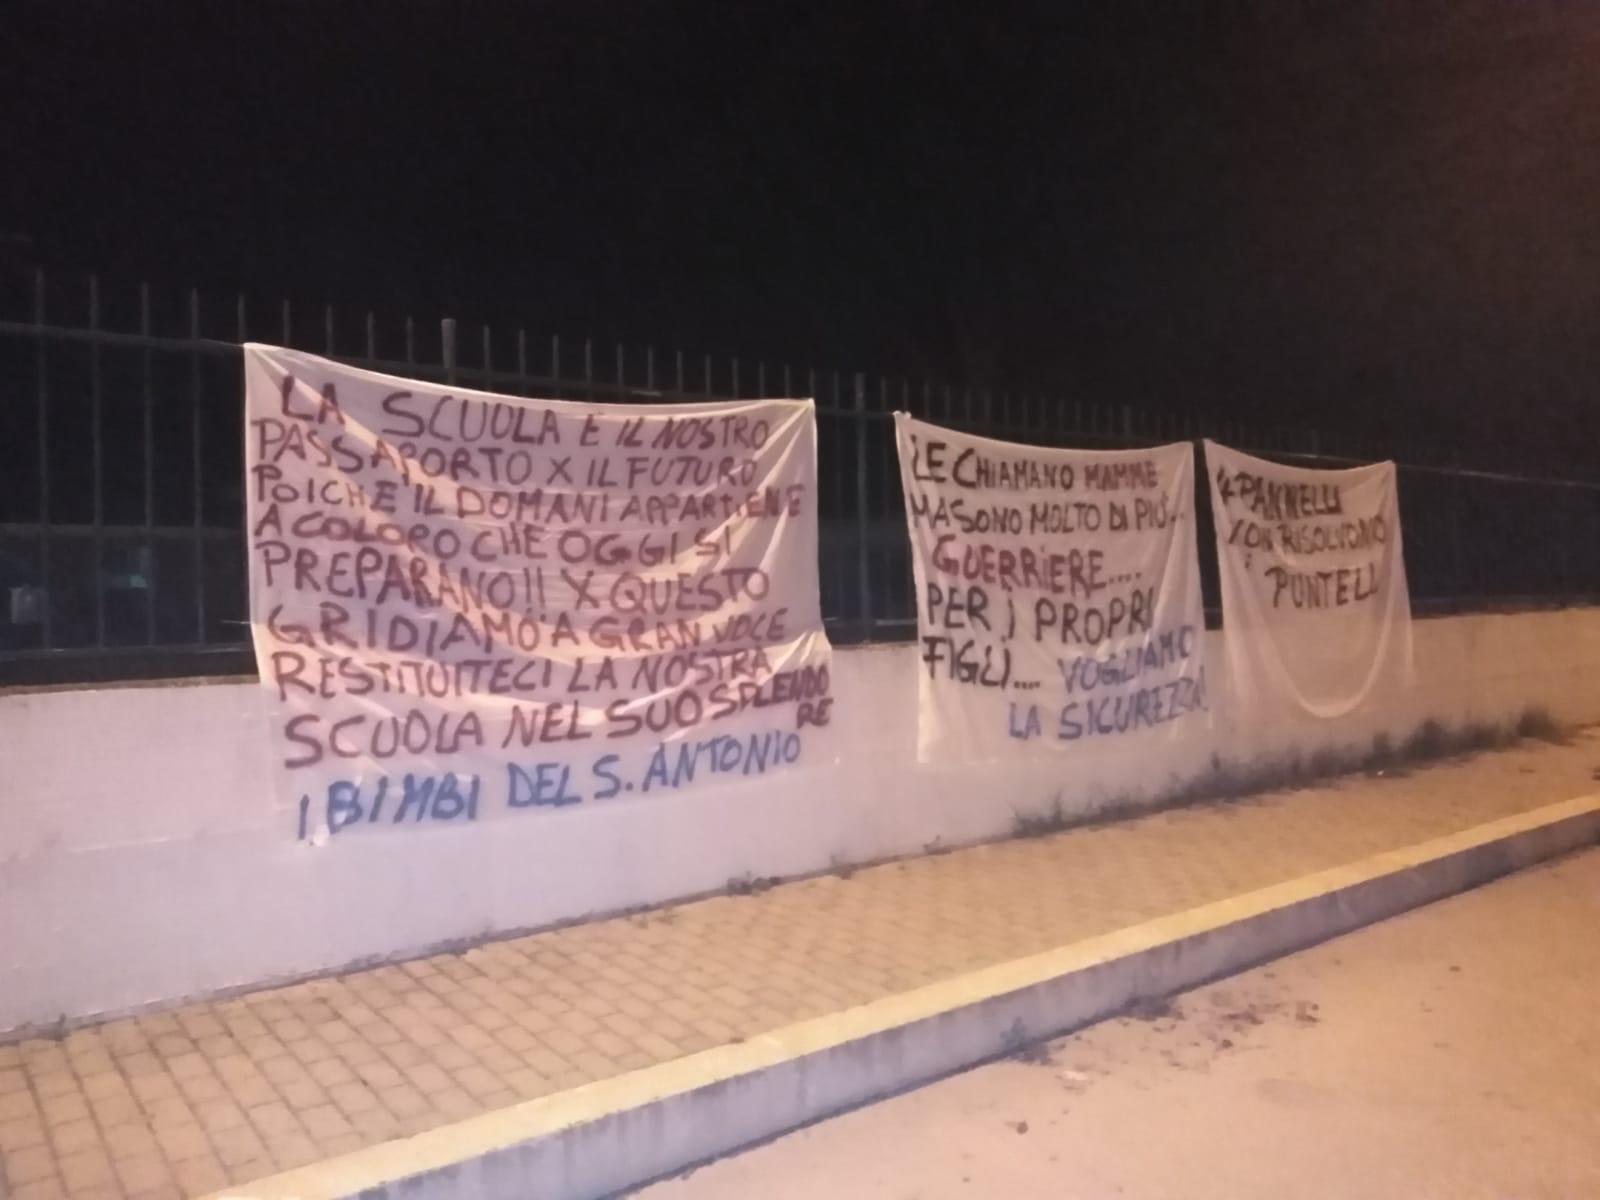 LA SCUOLA È IL NOSTRO
PASSAPORTO X IL FUTURO
POICHÈ IL DOMANI APPARTIENE
A COLORO CHE OGGI SI
PREPARANO!! X QUESTO
GRIDIAMO A GRAN VOCE
RESTITUITECI LA NOSTRA
SCUOLA NEL SUO SPLENDO
RE
I BIMBI DEL S. ANTONIO
LE CHIAMANO MAMME
MA SONO MOLTO DI PIÙ...
GUERRIERE....
PER I PROPRI
FIGLI.... VOGLIAMO
LA SICUREZZA!
4 PANNELLI
NON RISOLVONO
I PUNTELLI